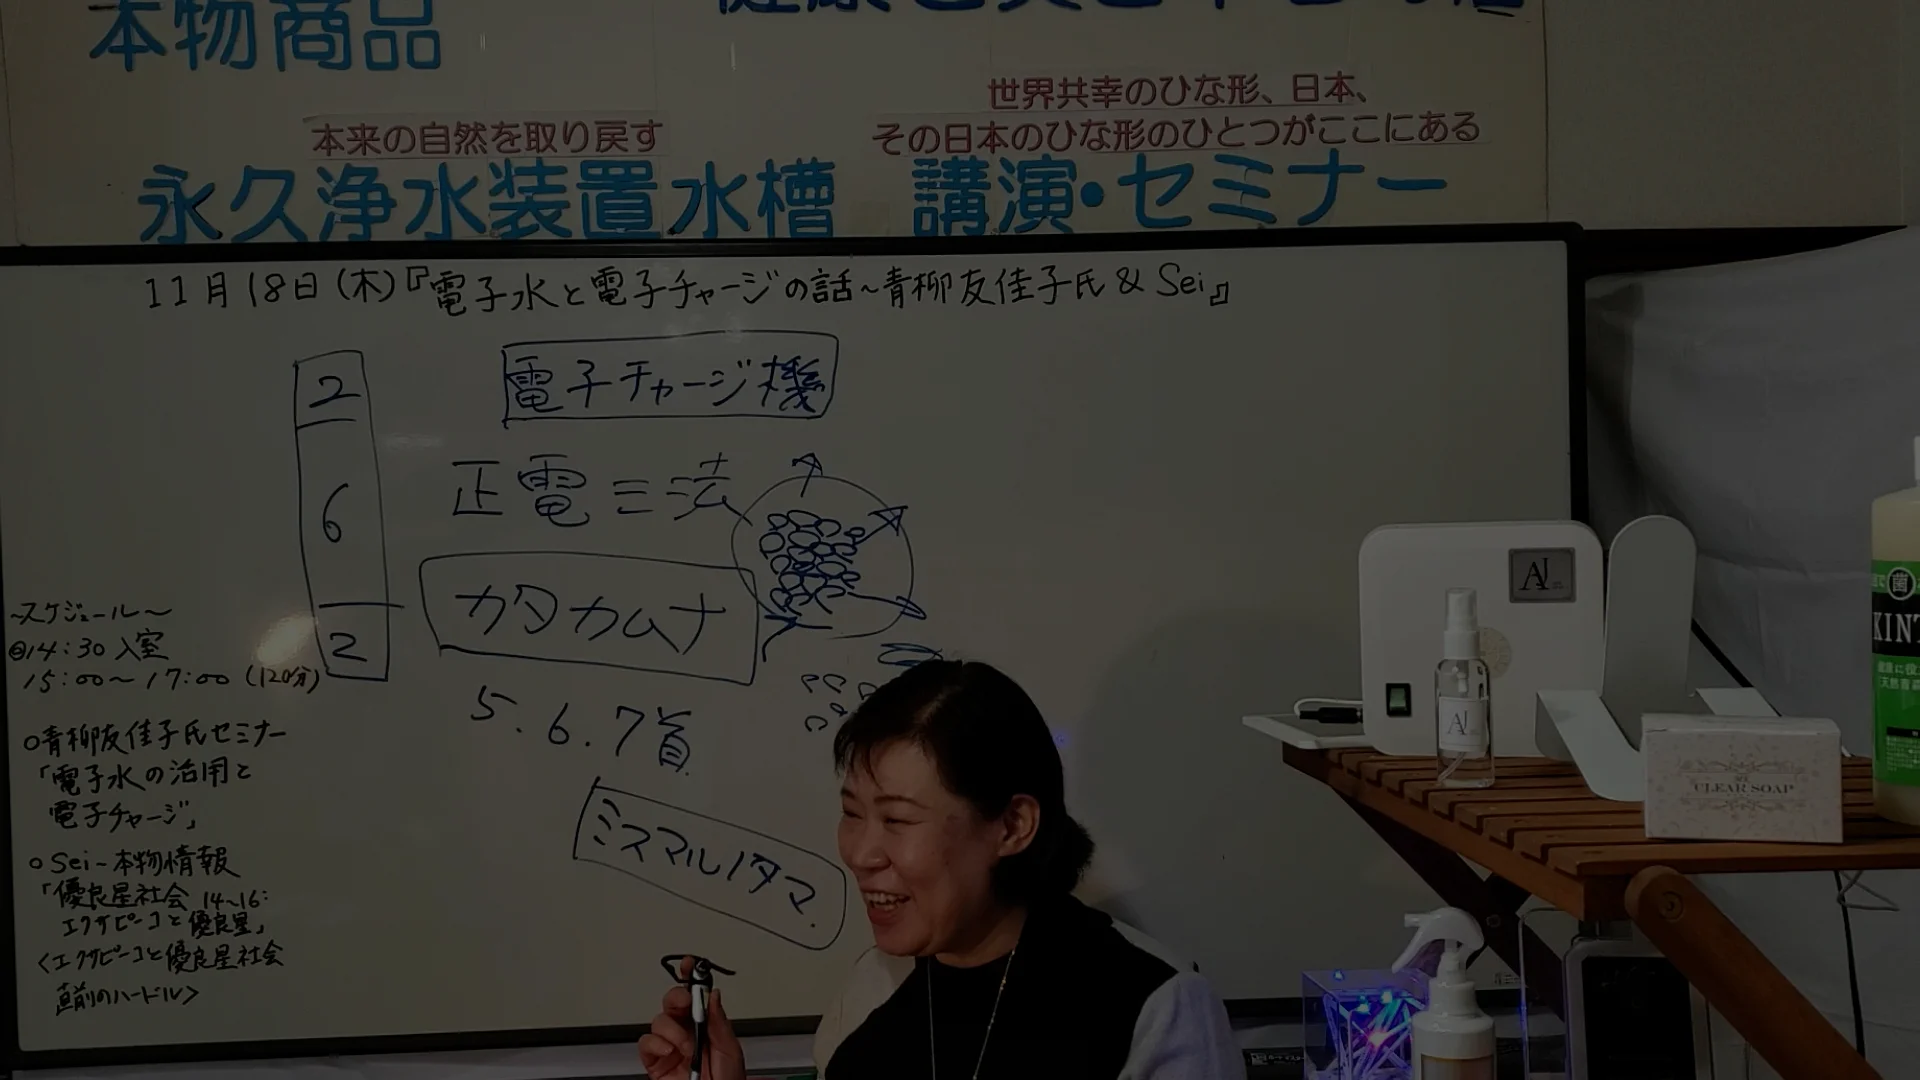 本物商品
世界共幸のひな形、日本、
本来の自然を取り戻す
その日本のひな形のひとつがここにある
永久浄水装置水槽 講演・セミナー
11月18日(木)『電子水と電子チャージの話~青柳友佳子氏 & Sei』
2
電子チャージ機
6
正電三法
カタカムナ
2
5.6.7首
ミスマルノタマ
~スケジュール~
◎14:30 入室
15:00~17:00 (120分)
○青柳友佳子氏セミナー
「電子水の活用と
電子チャージ」
○Sei-本物情報
「優良星社会 14~16:
エクサピーコと優良星」
<エクサピーコと優良星社会
直前のハードル>
AJ
AJ
CLEAR SOAP
菌